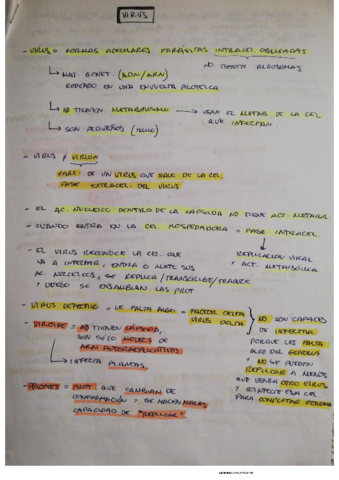 VIRUS
- VIRUS = FORMAS ACELULARES PARÁSITAS INTRACEL. OBLIGADAS
NO TIENEN RIBOSOMAS
↳ MAT. GENET. (ADN/ARN)
RODEADO EN UNA ENVUELTA PROTEICA
↳ NO TIENEN METABOLISMO → USAN EL METAB. DE LA CEL
QUE INFECTAN
↳ SON PEQUEÑOS
- VIRUS ≠ VIRION
PART. DE UN VIRUS QUE SALE DE LA CEL.
FASE EXTRACEL. DEL VIRUS
- EL AC. NUCLEICO DENTRO DE LA CÁPSIDA NO TIENE ACT. METAB
- CUANDO ENTRA EN LA CEL HOSPEDADORA = FASE INTRACEL
REPLICACION VIRAL
+ ACT. METABÓLICA
- EL VIRUS RECONOCE LA CEL. QUE
VA A INFECTAR, ENTRA O METE SUS
AC. NUCLEICOS, SE REPLICA/TRANSCRIBE/TRADUCE
Y LUEGO SE ENSAMBLAN LAS PROT
- VIRUS DEFECTIVO = LE FALTA ALGO = FACTOR DELTA
VIRUS DELTA
NO SON CAPACES
DE INFECTAR
PORQUE LES FALTA
ALGO DEL GENOMA
Y NO SE PUEDEN
REPLICAR A MENOS
QUE VENGA OTRO VIRUS
Y INFECTE ESA CEL
PARA COMPLETAR GENOMA
- VIROIDE = NO TIENEN CÁPSIDA,
SON SÓLO MOLEC DE
ARN AUTORREPLICATIVOS
↳ INFECTA PLANTAS
- PRIONES = PROT. QUE CAMBIAN DE
CONFORMACIÓN Y SE HACEN MALAS
CAPACIDAD DE "REPLICAR"